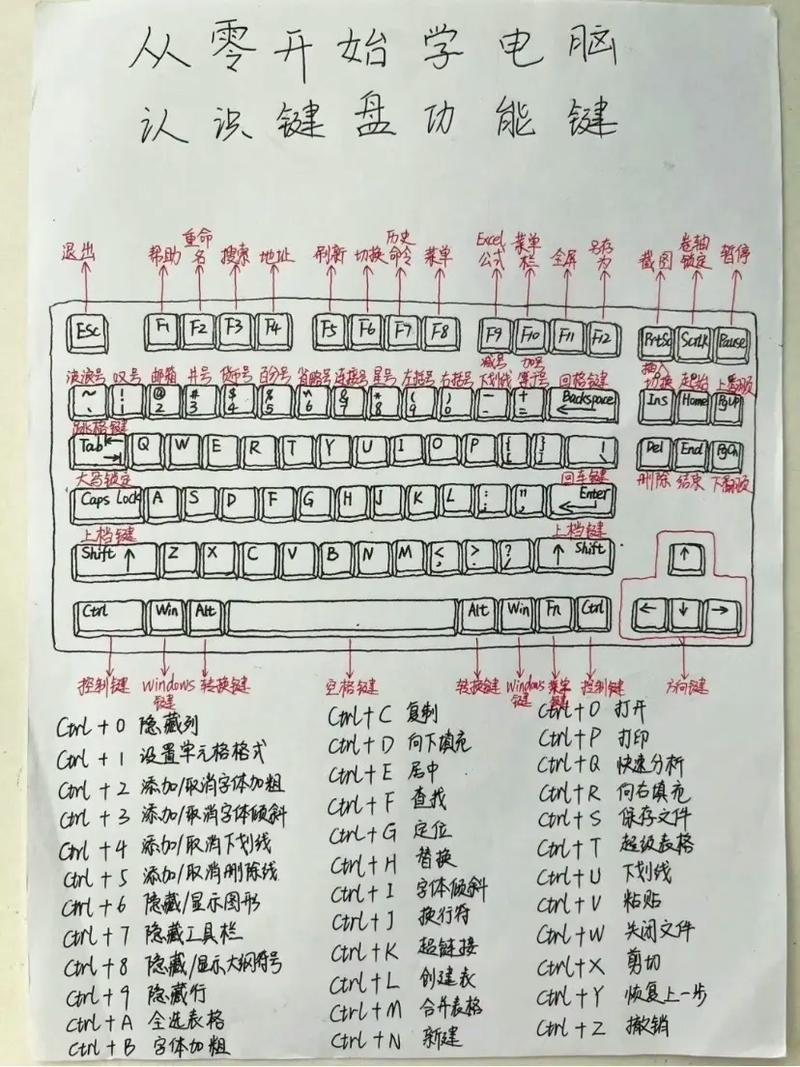 从零开始学电脑
认识键盘功能键
退出 帮助 重命名 搜索 地址 刷新 切换 历史命令 菜单 Excel公式 菜单栏 全屏 另存为 截图 卷轴锁定 暂停
Esc F1 F2 F3 F4 F5 F6 F7 F8 F9 F10 F11 F12 PrtSc ScrLK Pause
波浪号 叹号 邮箱 井号 货币号 百分号 省略号 连接号 星号 左括号 右括号 减号下划线 加号等于号 回格键 插入切换 起始 上翻页
~ 、 ! 1 @ 2 # 3 $ 4 % 5 ^ 6 & 7 * 8 ( 9 ) 0 - - + = Backspace Ins Home PgUP
跳格键
Tab Q W E R T Y U I O P { [ } ] | \ Del End PgDn
大写锁定 回车键 删除 结束 下翻页
Caps Lock A S D F G H J K L : ; " , Enter
上档键 上档键
Shift ↑ Z X C V B N M < , > . ? / ↑ Shift ↑
Ctrl Win Alt Alt Win Fn Ctrl ← ↓ →
控制键 Windows键 转换键 空格键 转换键 Windows键 菜单键 控制键 方向键
Ctrl + 0 隐藏列
Ctrl + 1 设置单元格格式
Ctrl + 2 添加/取消字体加粗
Ctrl + 3 添加/取消字体倾斜
Ctrl + 4 添加/取消下划线
Ctrl + 5 添加/取消删除线
Ctrl + 6 隐藏/显示图形
Ctrl + 7 隐藏工具栏
Ctrl + 8 隐藏/显示大纲符号
Ctrl + 9 隐藏行
Ctrl + A 全选表格
Ctrl + B 字体加粗
Ctrl + C 复制
Ctrl + D 向下填充
Ctrl + E 居中
Ctrl + F 查找
Ctrl + G 定位
Ctrl + H 替换
Ctrl + I 字体倾斜
Ctrl + J 换行符
Ctrl + K 超链接
Ctrl + L 创建表
Ctrl + M 合并表格
Ctrl + N 新建
Ctrl + O 打开
Ctrl + P 打印
Ctrl + Q 快速分析
Ctrl + R 向右填充
Ctrl + S 保存文件
Ctrl + T 超级表格
Ctrl + U 下划线
Ctrl + V 粘贴
Ctrl + W 关闭文件
Ctrl + X 剪切
Ctrl + Y 恢复上一步
Ctrl + Z 撤销